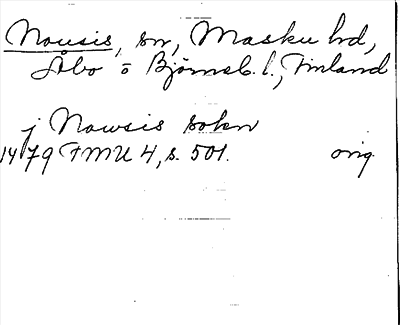 Nousis, sn, Masku hd,
Åbo o Björneb. l., Finland
j Nowsis sokn
1479 FMU 4, s. 501. orig.